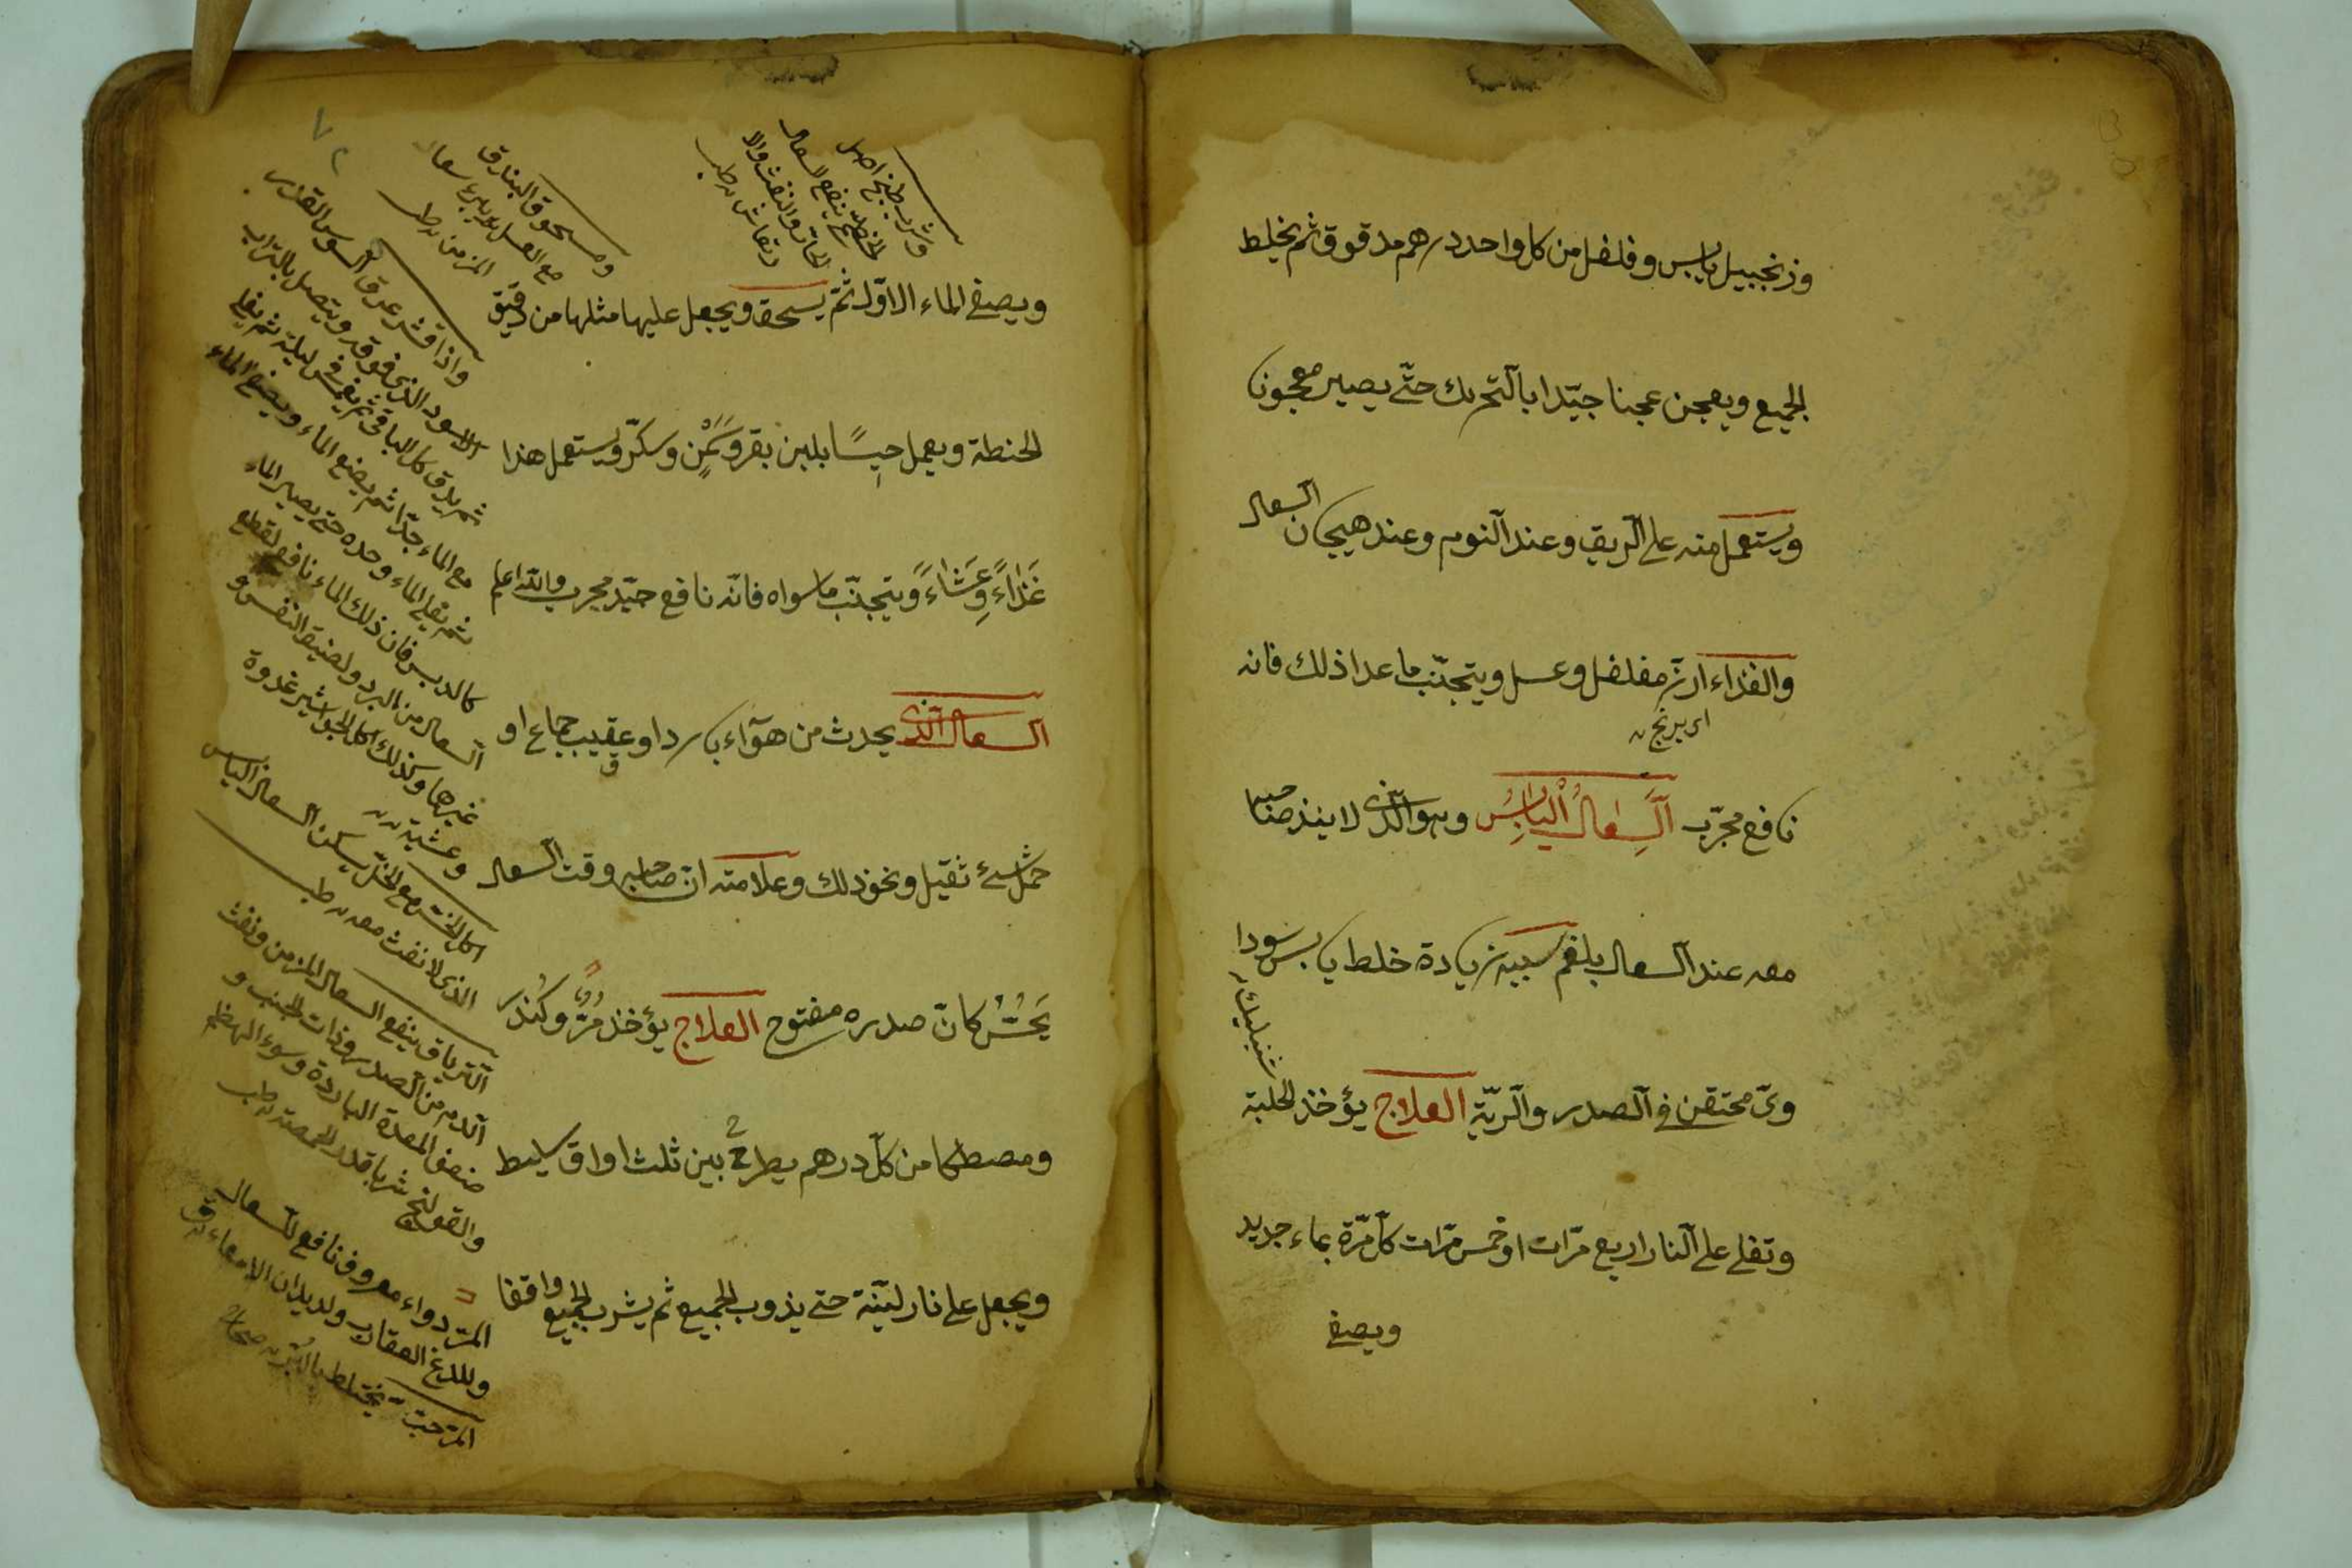 وزنجبيل يابس وفلفل من كل واحد درهم مدقوق ثم يخلط
الجميع ويعجن عجنا جيّدا بالتحريك حتّى يصير معجونا
ويستعمل منه على الريق وعند النوم وعند هيجان السعال
والغذاء ارز مفلفل وعسل ويتجنّب ما عدا ذلك فانه
اى برنج
نافع مجرّب السِّعالُ اليابِسُ وهو الذى لا ينفذ صاحبه
معه عند السعال بلغم سببه زيادة خلط يابس سودا
وى محتقن فى الصدر والريّة العلاج يؤخذ الحلبة
شنبليك
وتغلى على النار اربع مرّات او خمس مرّات كلّ مرّة بماء جديد
ويصفى
ويصفى الماء الاوّل ثمّ يسحق ويجعل عليها مثلها من دقيق
الحنطة ويعمل حيسًا بلبن بقر وسَمْنٍ وسكّر ويستعمل هذا
غَذاءً وعِشاءً ويتجنّب ما سواه فانّه نافع جيّد مجرب والله اعلم
السعال الذى يحدث من هوآء بارد او عقيب جماع او
حمل شئ ثقيل ونحو ذلك وعلامته انّ صاحبه وقت السعال
يَحُسُّ كانّ صدره مفتوح العلاج يؤخذ مُرٌّ وكُنْدُر
ومصطكا من كلّ درهم يطرح بين ثلث اواق سليط
ويجعل على نار ليّنة حتى يذوب الجميع ثم يشرب الجميع واقفا
وشرب طبيخ اصل
الخطمى ينفع السعال
الحارّ والنفث والا
رتعاش طب
ومسحوق البندق
مع العسل يبرئ سعال
المزمن طب
واذا قشر عرق السوس القشر
الاسود الذى فوقه ويتصل بالتراب
ثم يدق كل الباقى ثم يغمس فى ليلة ثم يغلى
مع الماء جدّا ثم يضع الماء ويصفى الماء
ثم يغلى الماء وحده حتى يصير الماء
كالدبس فان ذلك الماء نافع لقطع
السعال من البرد ولضيق النفس و
غيرها وكذلك اكل الجواشير غدوة
وعشية
اكل الخس مع الخلّ يسكن السعال اليابس
الذى لا نفث معه طب
الترياق ينفع السعال المزمن ونفث
الدم من الصدر وذات الجنب و
ضعف المعدة الباردة وسوء الهضم
والقولنج شربا قدر الحمصة طب
المرّ دواء معروف نافع للسعال
وللدغ العقارب ولديدان الامعاء ق
المرّ حبّة يختلط بالبُرّ صحاح